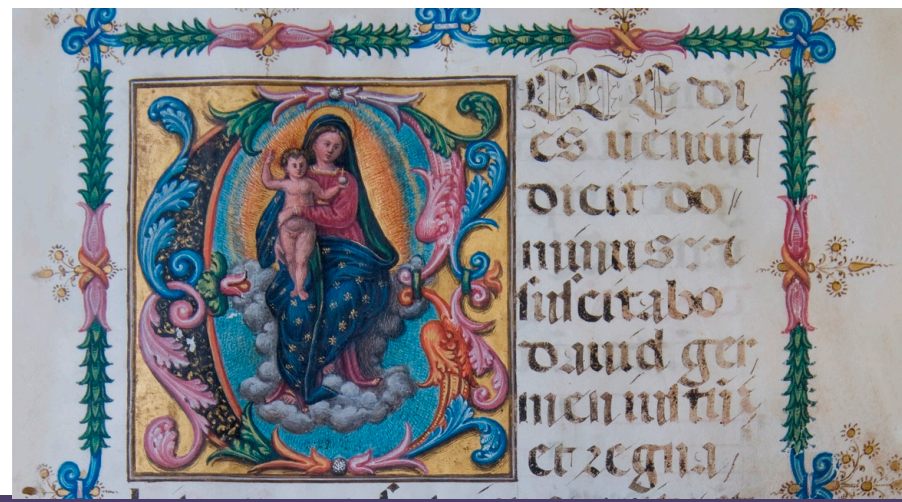 CCE di
es ueniu͂t
dicit do
minus: et
suscitabo
dauid ger
men iustū:
et regna